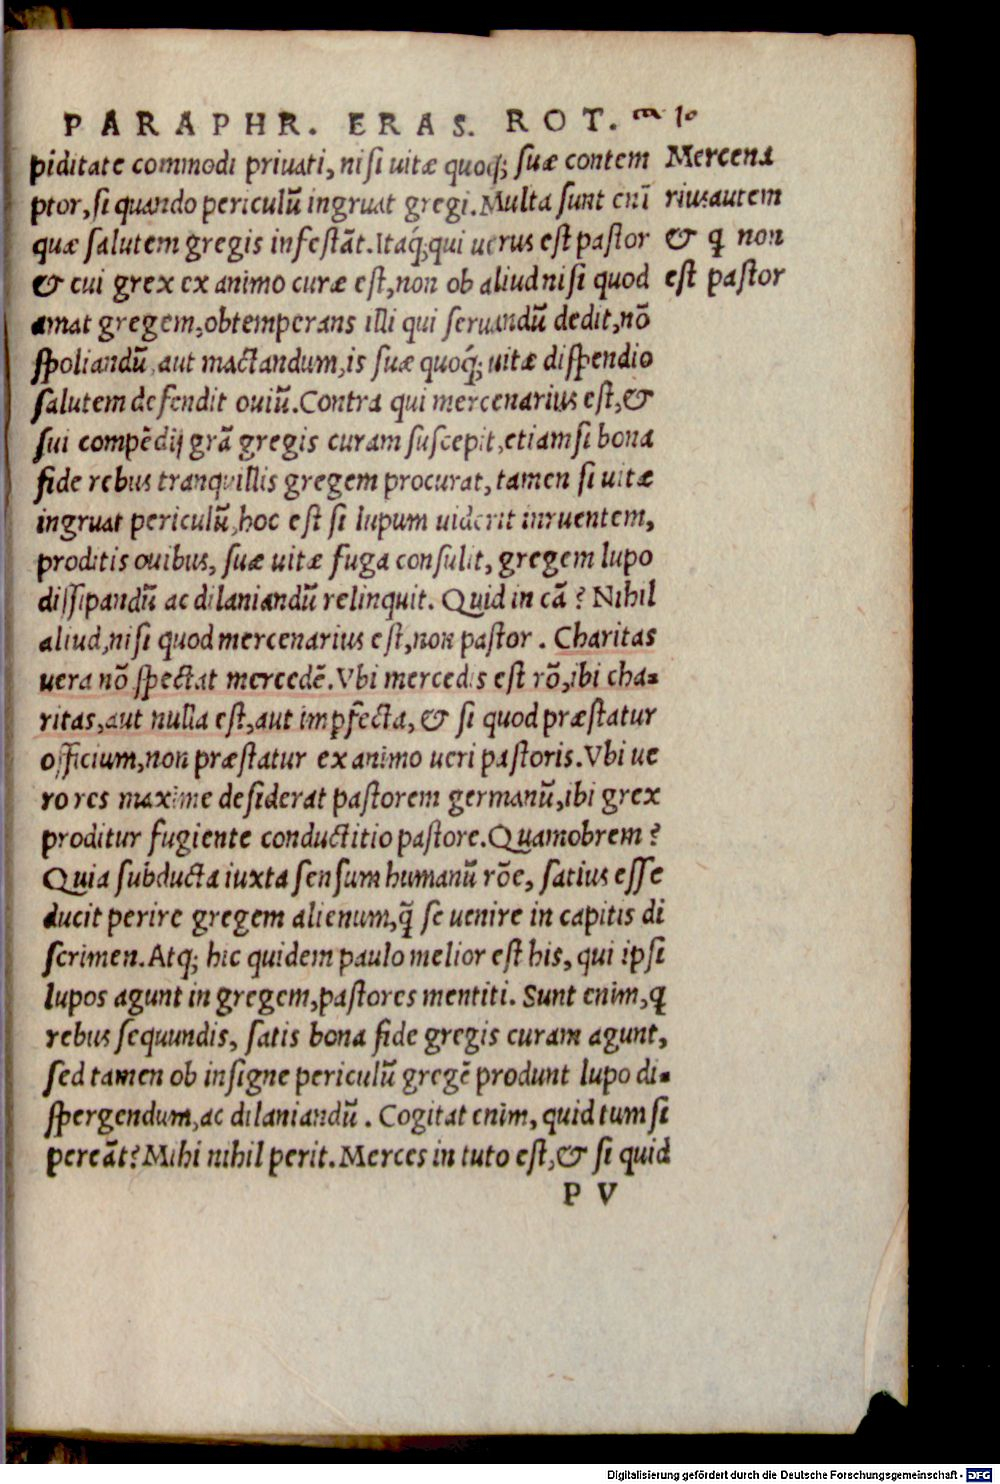 PARAPHR. ERAS. ROT.
piditate commodi priuati, nisi uitæ quoq; suæ contem
ptor, si quando periculū ingruat gregi. Multa sunt enī
quæ salutem gregis infestāt. Itaq; qui uerus est pastor
& cui grex ex animo curæ est, non ob aliud nisi quod
amat gregem, obtemperans illi qui seruandū dedit, nō
spoliandū, aut mactandum, is suæ quoq; uitæ dispendio
salutem defendit ouiū. Contra qui mercenarius est, &
sui compēdij grā gregis curam suscepit, etiamsi bona
fide rebus tranquillis gregem procurat, tamen si uitæ
ingruat periculū, hoc est si lupum uiderit inruentem,
proditis ouibus, suæ uitæ fuga consulit, gregem lupo
dissipandū ac dilaniandū relinquit. Quid in cā? Nihil
aliud, nisi quod mercenarius est, non pastor. Charitas
uera nō spectat mercedē. Vbi mercedis est rō, ibi cha-
ritas, aut nulla est, aut imꝑfecta, & si quod præstatur
officium, non præstatur ex animo ueri pastoris. Vbi ue
ro res maxime desiderat pastorem germanū, ibi grex
proditur fugiente conductitio pastore. Quamobrem?
Quia subducta iuxta sensum humanū rōe, satius esse
ducit perire gregem alienum, q̄ se uenire in capitis di
scrimen. Atq; hic quidem paulo melior est his, qui ipsi
lupos agunt in gregem, pastores mentiti. Sunt enim, q
rebus sequundis, satis bona fide gregis curam agunt,
sed tamen ob insigne periculū gregē produnt lupo di-
spergendum, ac dilaniandū. Cogitat enim, quid tum si
pereāt? Mihi nihil perit. Merces in tuto est, & si quid
P V
Mercena
rius autem
& q non
est pastor
Digitalisierung gefördert durch die Deutsche Forschungsgemeinschaft - DFG